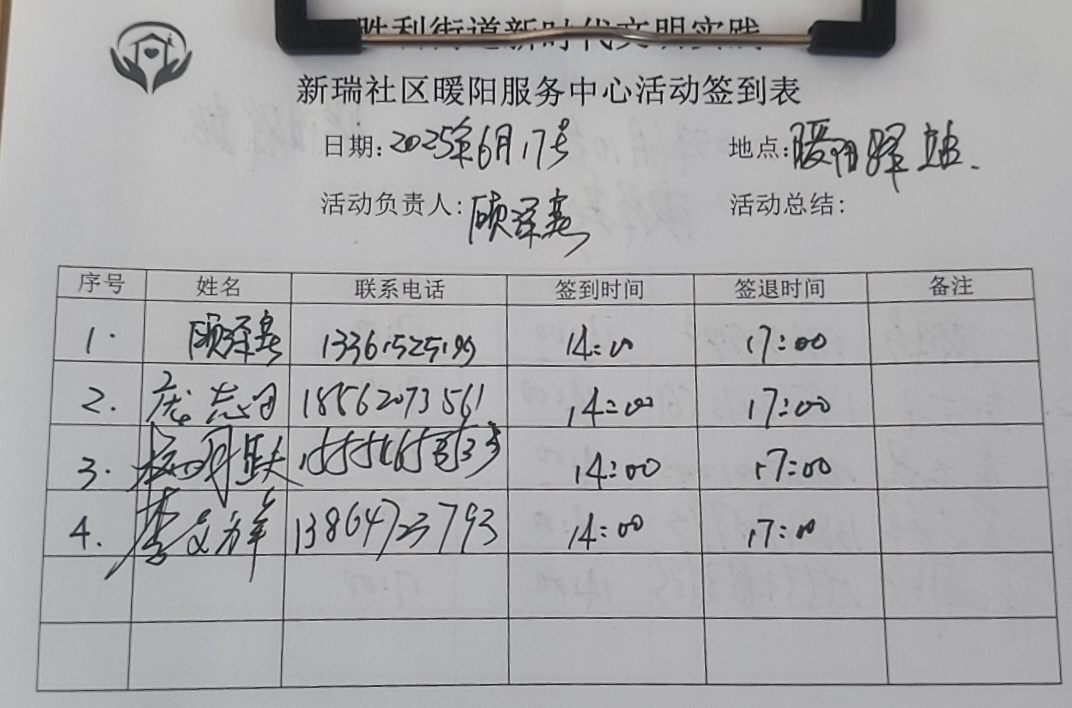 胜利街道新时代文明实践
新瑞社区暖阳服务中心活动签到表
日期: 2025年6月17号 地点: 暖阳驿站.
活动负责人: 顾泽嘉 活动总结:
序号 姓名 联系电话 签到时间 签退时间 备注
1. 顾泽嘉 14:00 17:00
2. 18562073561 14:00 17:00
3. 14:00 17:00
4. 李文祥 13864723793 14:00 17:00